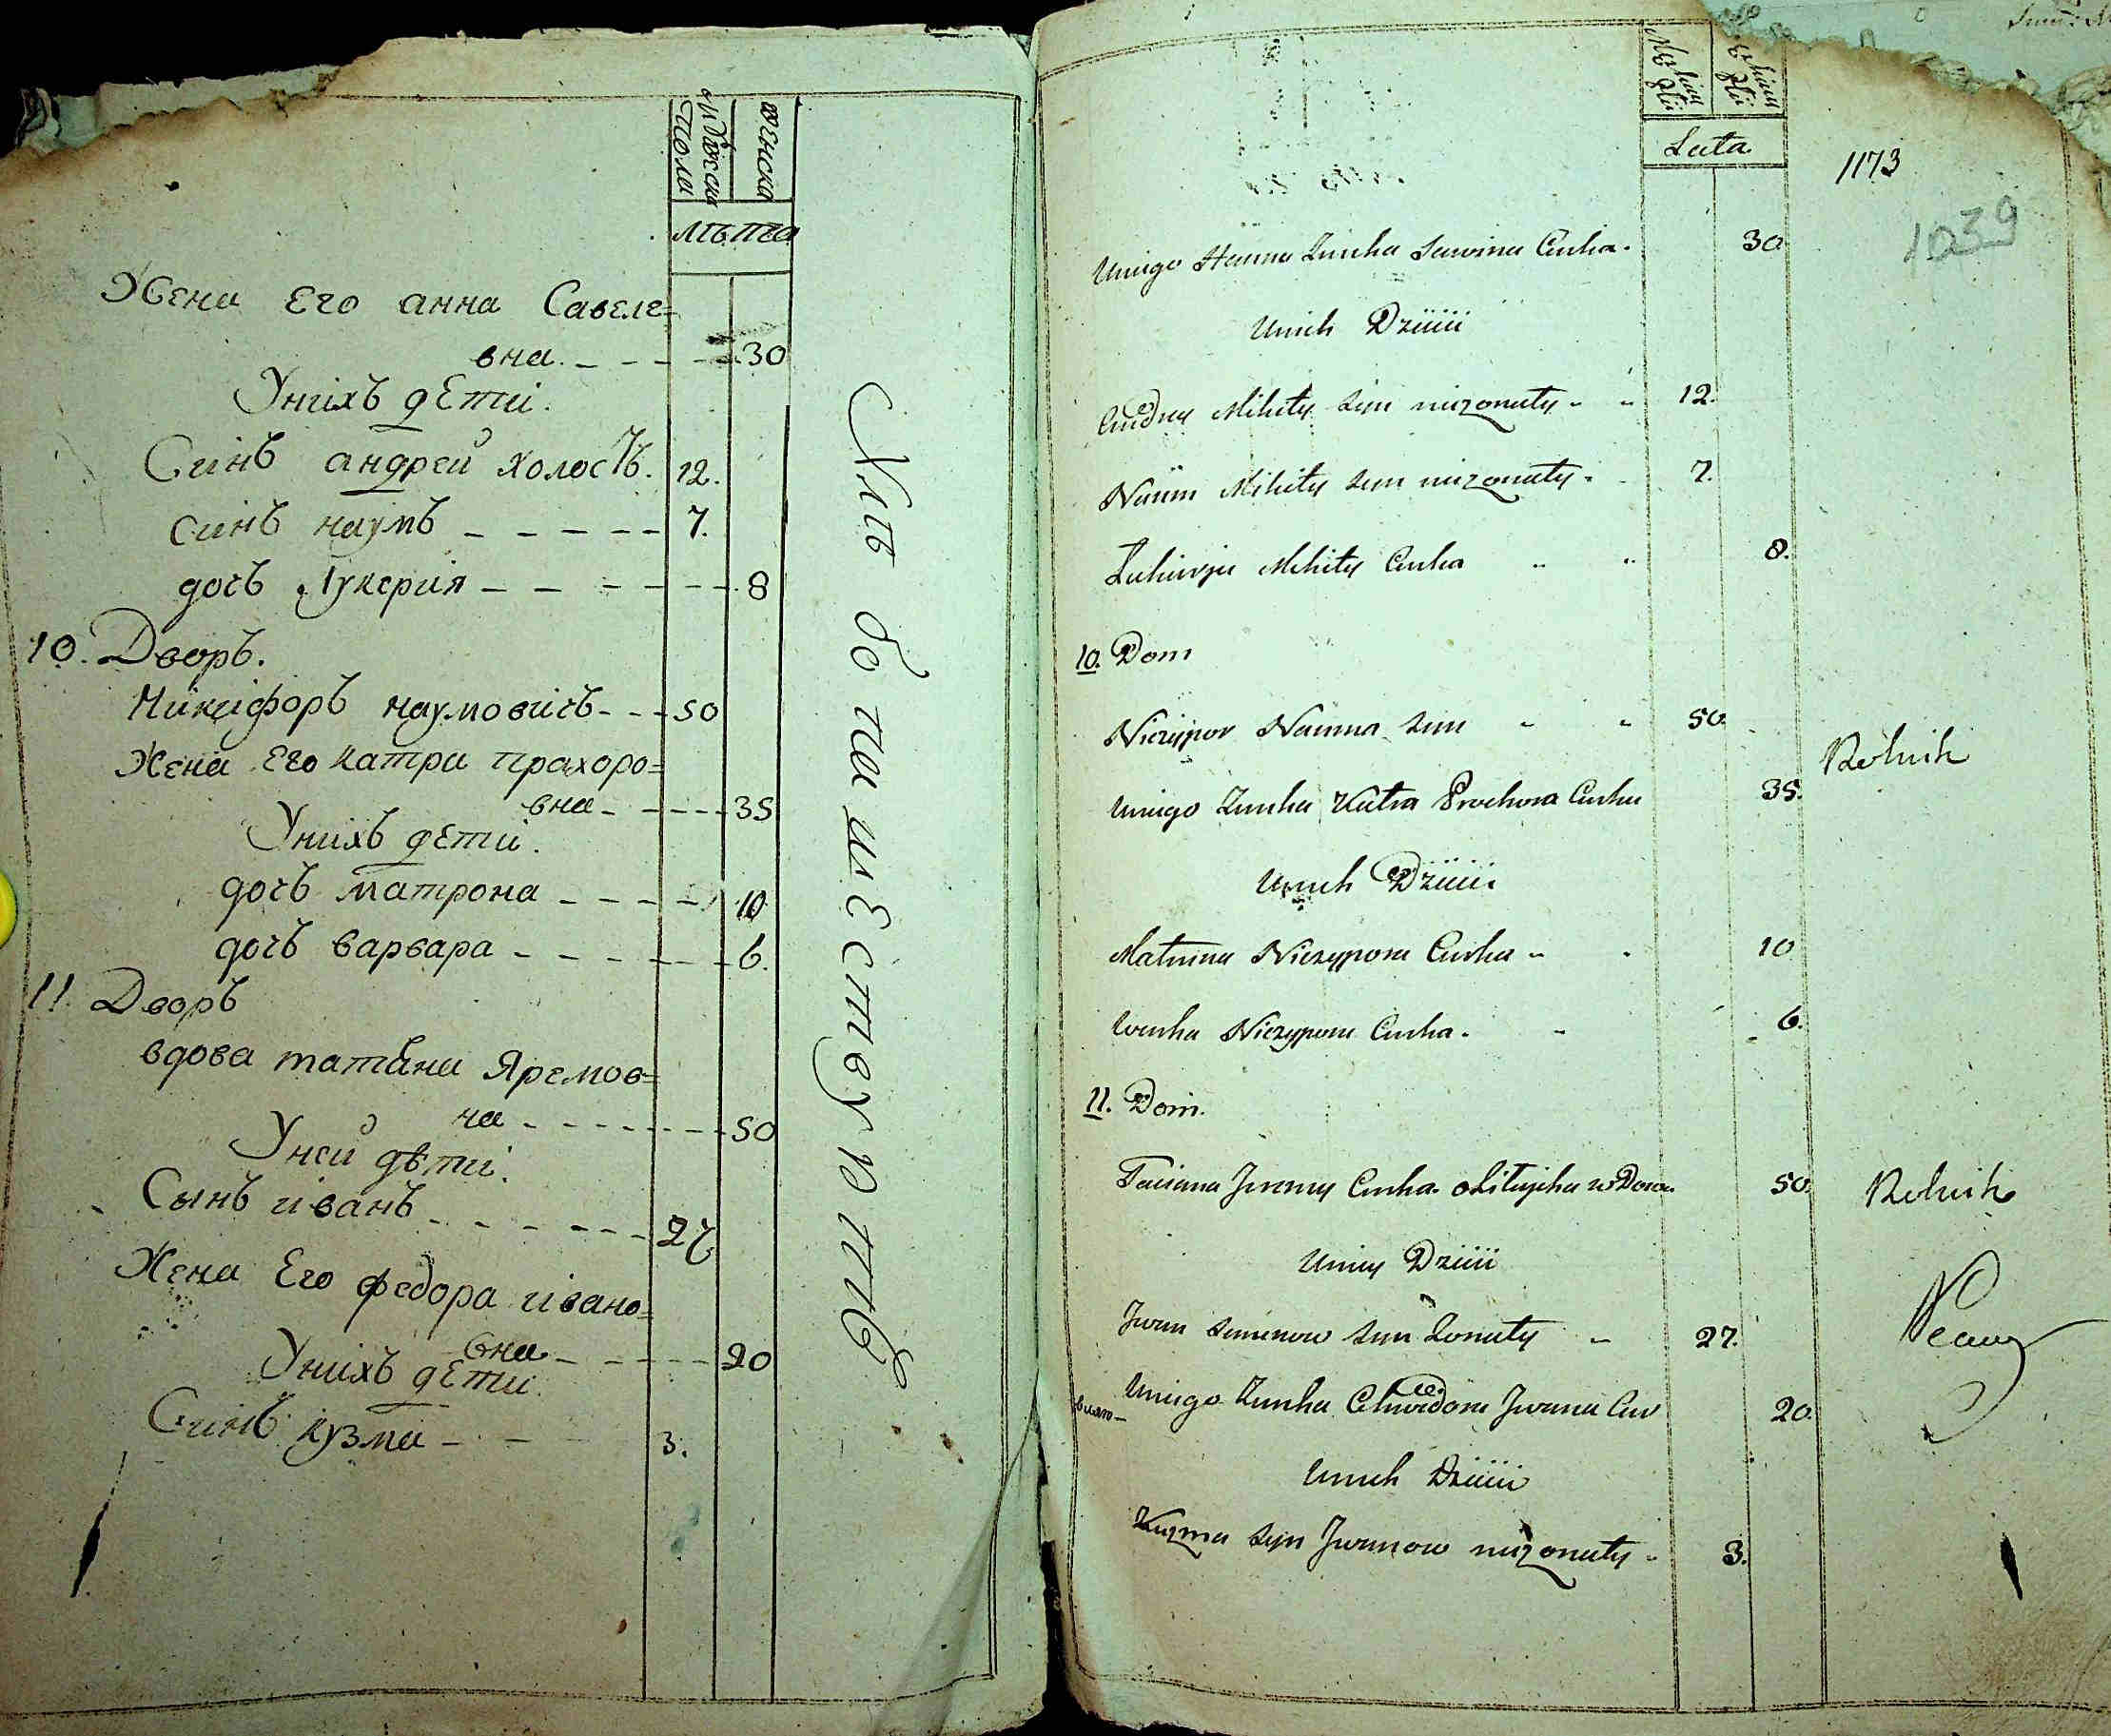 мужеска
пола
женска
лѣта
Жена Его анна Савеле=
вна. 30
Унихъ дЕти.
Синъ андрей холостъ. 12.
синъ наумъ 7.
дочъ Лукерия 8
10. Дворъ.
Никифоръ наумовичъ 50
Жена Его катри прахоро=
вна 35
Унихъ дЕти.
дочъ матрона 10
дочъ варвара 6.
11. Дворъ
вдова татӏана Яремов=
на 50
Уней дѣти.
Сынъ иванъ 27
Жена Его федора ивано=
вна 20
Унихъ дЕти.
Синъ кузма 3.
Хлѣбопашествуютъ
Lata
1173
1039
Uniego Hanna Zonka Sawina Curka. 30
Unich Dzieci
Andrey Mikity syn niezonaty 12.
Naum Mikity syn niezonaty 7.
Lukierja Mikity Curka 8.
10. Dom
Niczypor Nauma syn 50.
Rolnik
Uniego Zonka Katra Prochora Curka 35.
Unich Dzieci
Matruna Niczypora Curka 10
Warka Niczypora Curka. 6.
11. Dom.
Taciana Jeremy Curka 50.
Rolnik
Uniey Dzieci
Jwan Semenow syn Zonaty 27.
Uniego Zonka Chwedora Jwana Cur 20.
Unich Dzieci
Kuzma syn Jwanow niezonaty 3.